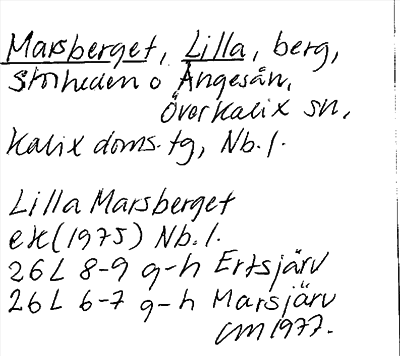 Marsberget, Lilla, berg,
Storheden o Ängesån,
Överkalix sn,
Kalix doms. tg, Nb. l.
Lilla Marsberget
ek (1975) Nb. l.
26L 8-9 g-h Ertsjärv
26L 6-7 g-h Marsjärv
CM 1977.